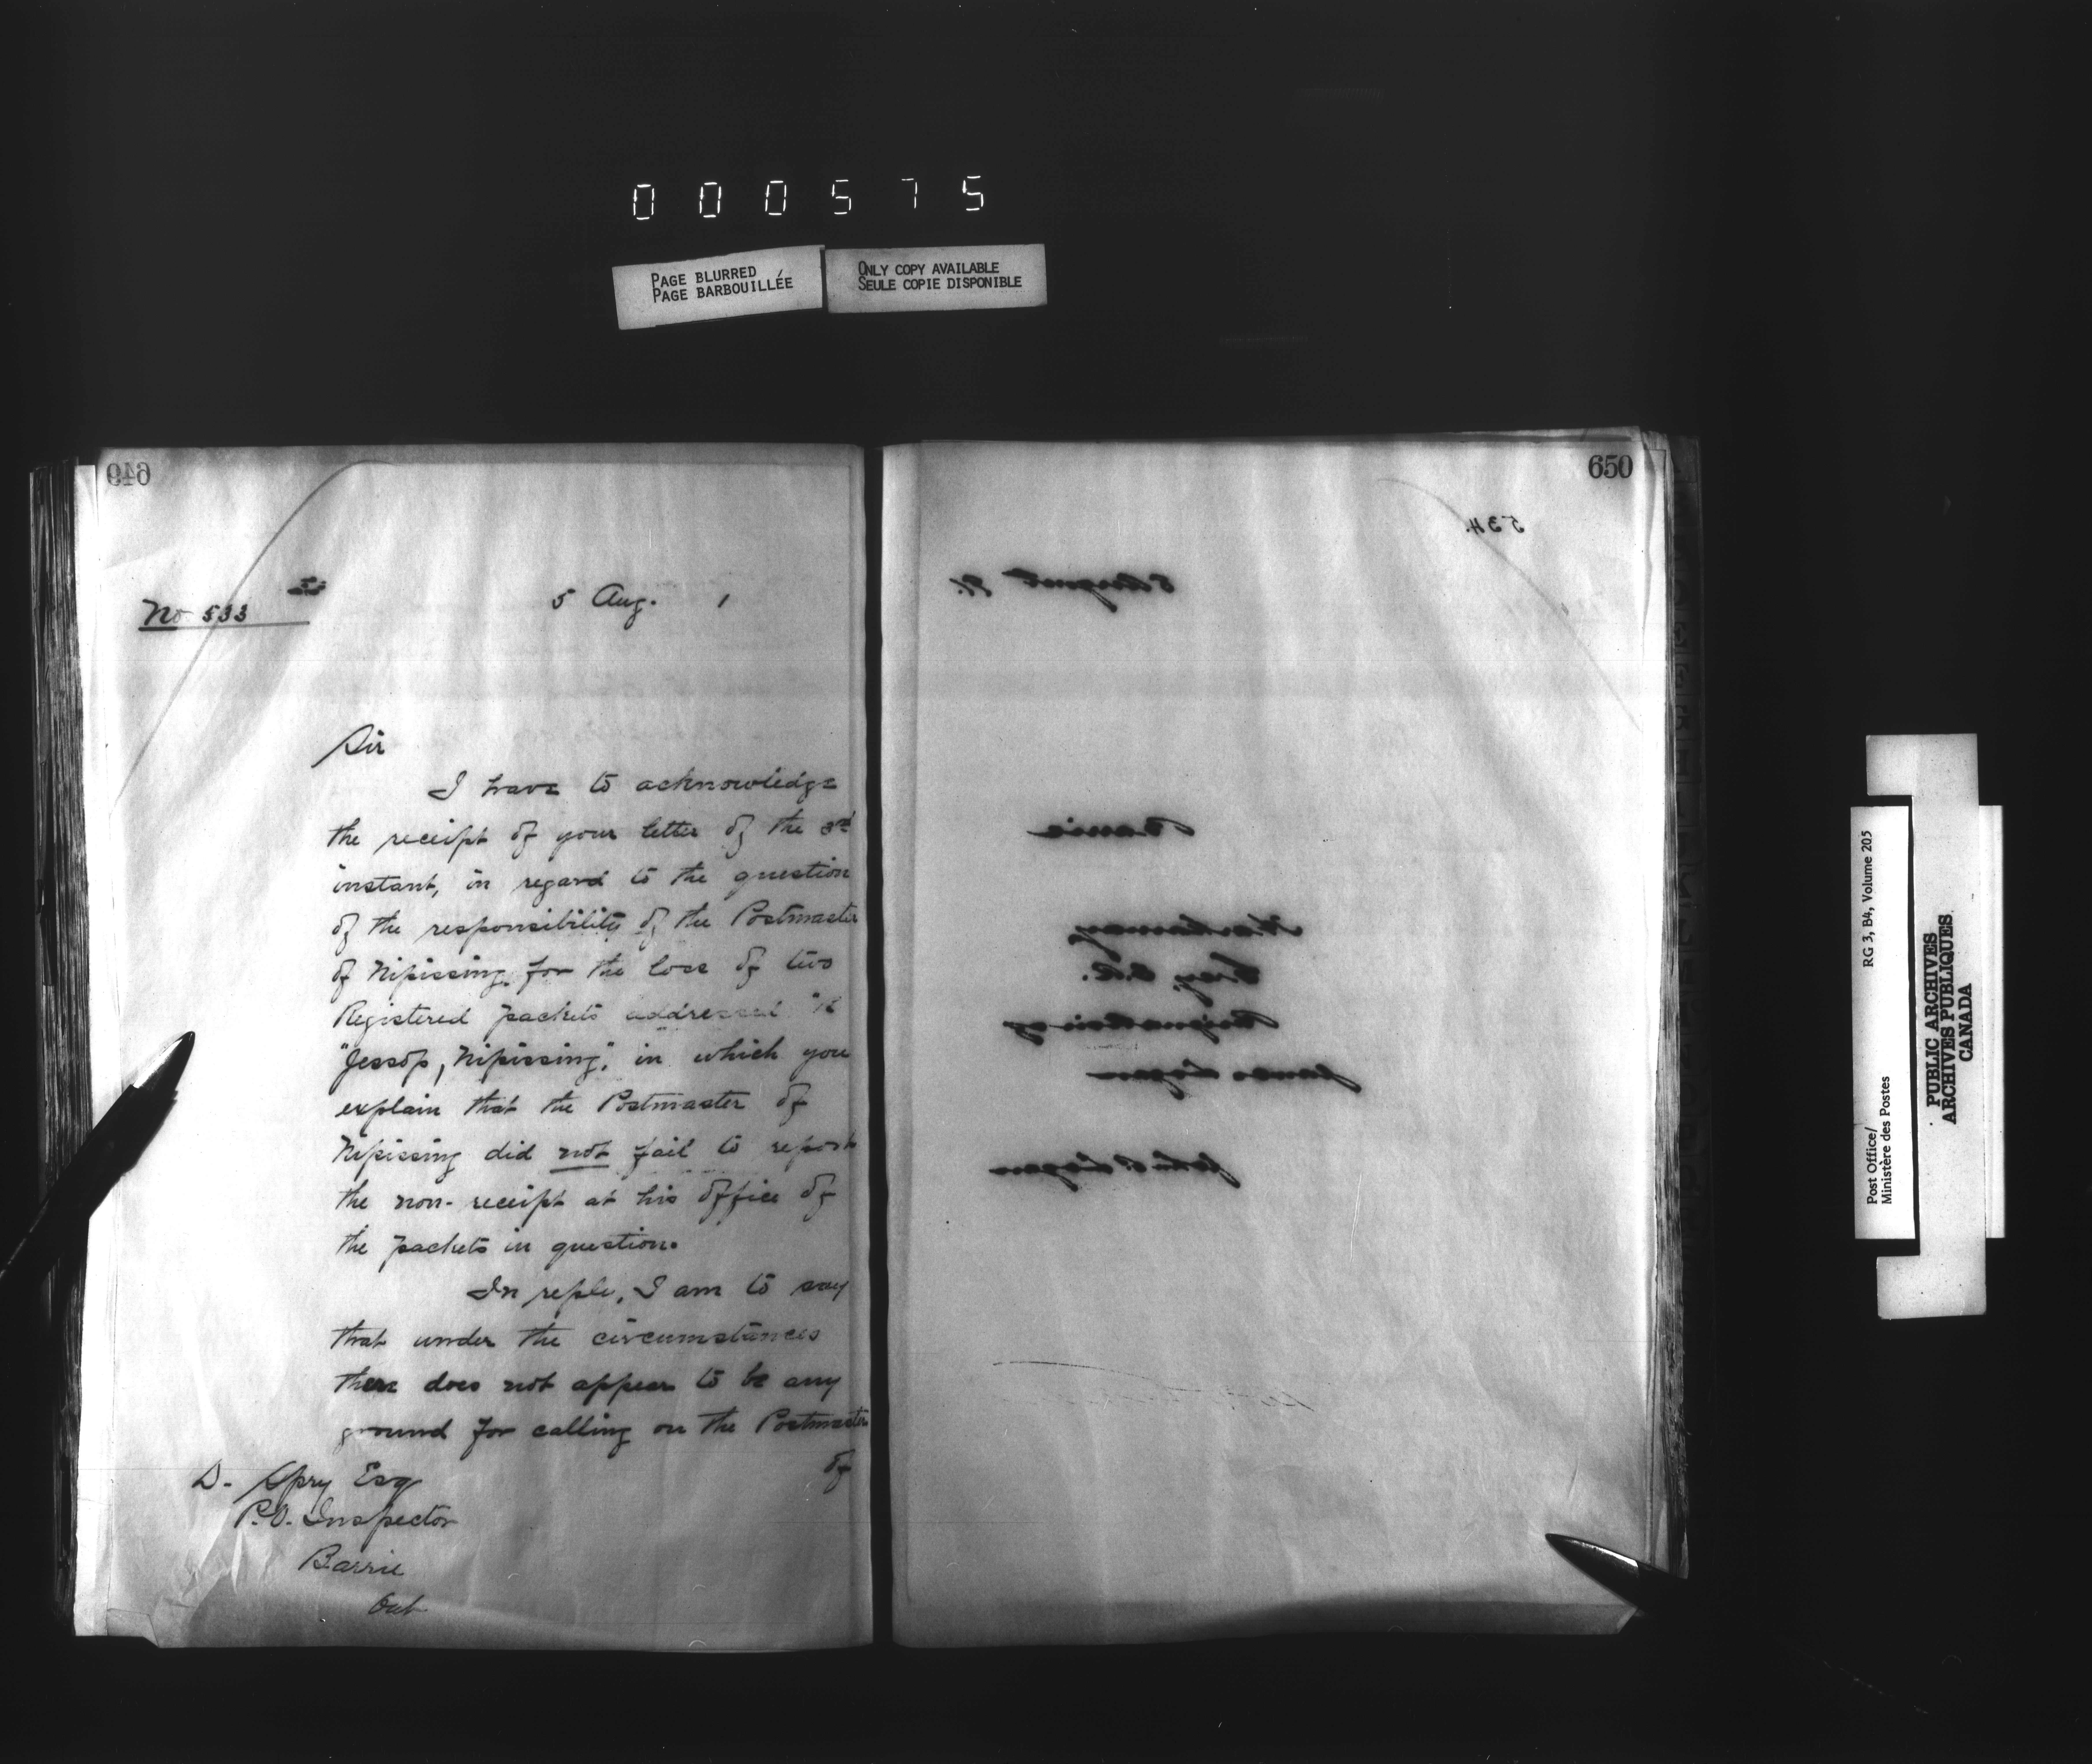 000575
PAGE BLURRED
PAGE BARBOUILLÉE
ONLY COPY AVAILABLE
SEULE COPIE DISPONIBLE
649
No 533
5 Aug. 1
Sir
I have to acknowledge
the receipt of your letter of the 3rd
instant, in regard to the question
of the responsibility of the Postmaster
of Nipissing for the loss of two
Registered packets addressed
"Jessop, Nipissing", in which you
explain that the Postmaster of
Nipissing did not fail to report
the non-receipt at his office of
the packets in question.
In reply, I am to say
that under the circumstances
there does not appear to be any
ground for calling on the Postmaster
of
D. Spry Esq
P.O. Inspector
Barrie
Ont
650
534.
5 August 91.
Barrie
Grey, E.R.
James Logan
John P. Logan
Post Office/
Ministère des Postes
RG 3, B4, Volume 205
PUBLIC ARCHIVES
ARCHIVES PUBLIQUES
CANADA